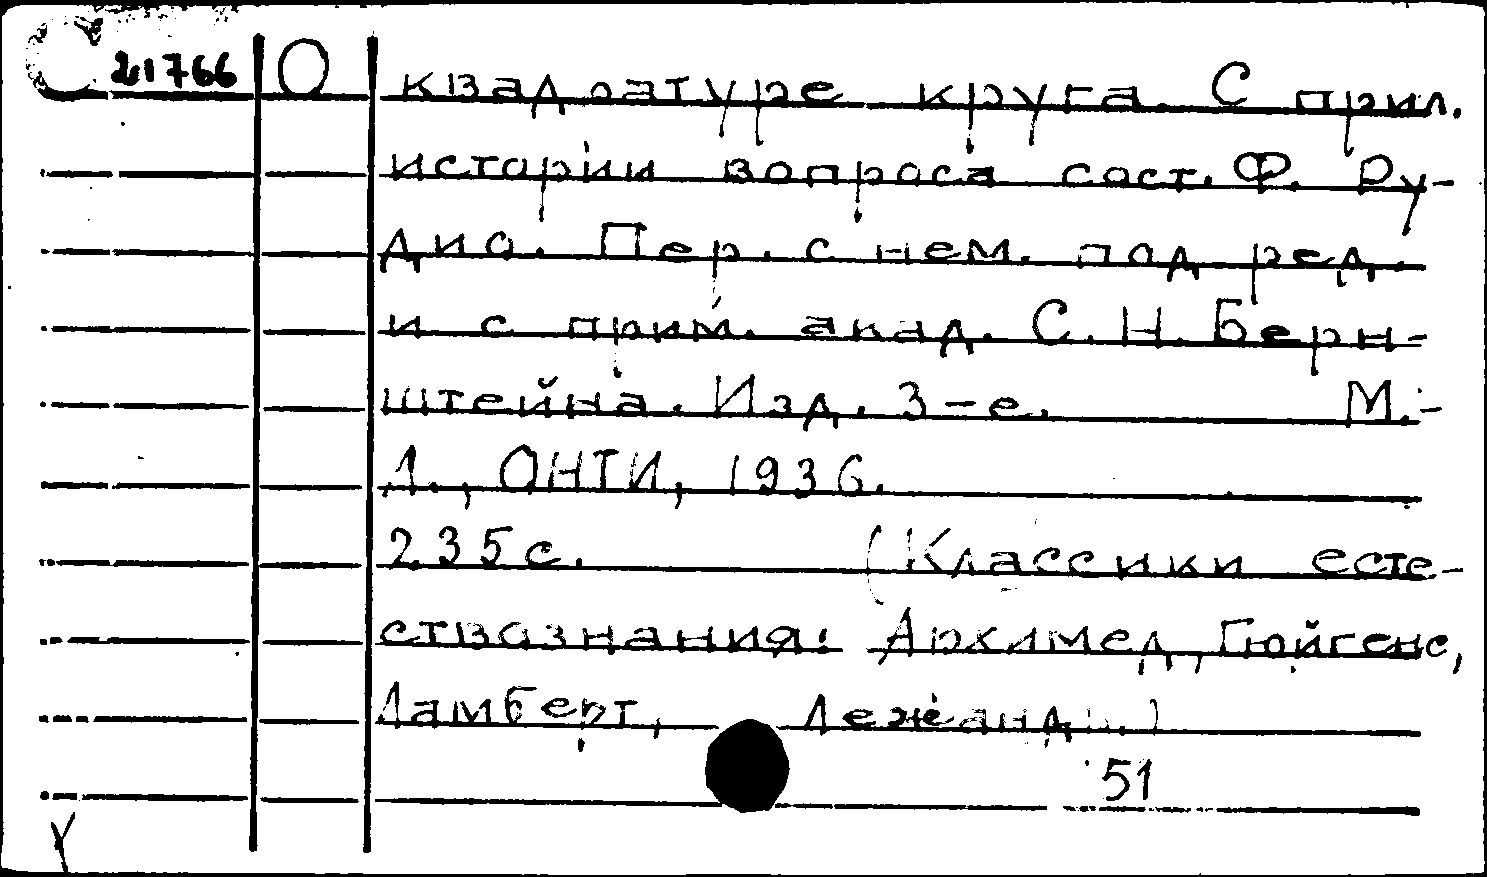 21766 О квадратуре круга. С прил.
истории вопроса сост. Ф. Ру-
дио. Пер. с нем. под ред.
и с прим. акад. С. Н. Берн-
штейна. Изд. 3-е. М.-
Л., ОНТИ, 1936.
235 с. (Классики есте-
ствознания: Архимед, Гюйгенс,
Ламберт, Лежандр.)
51